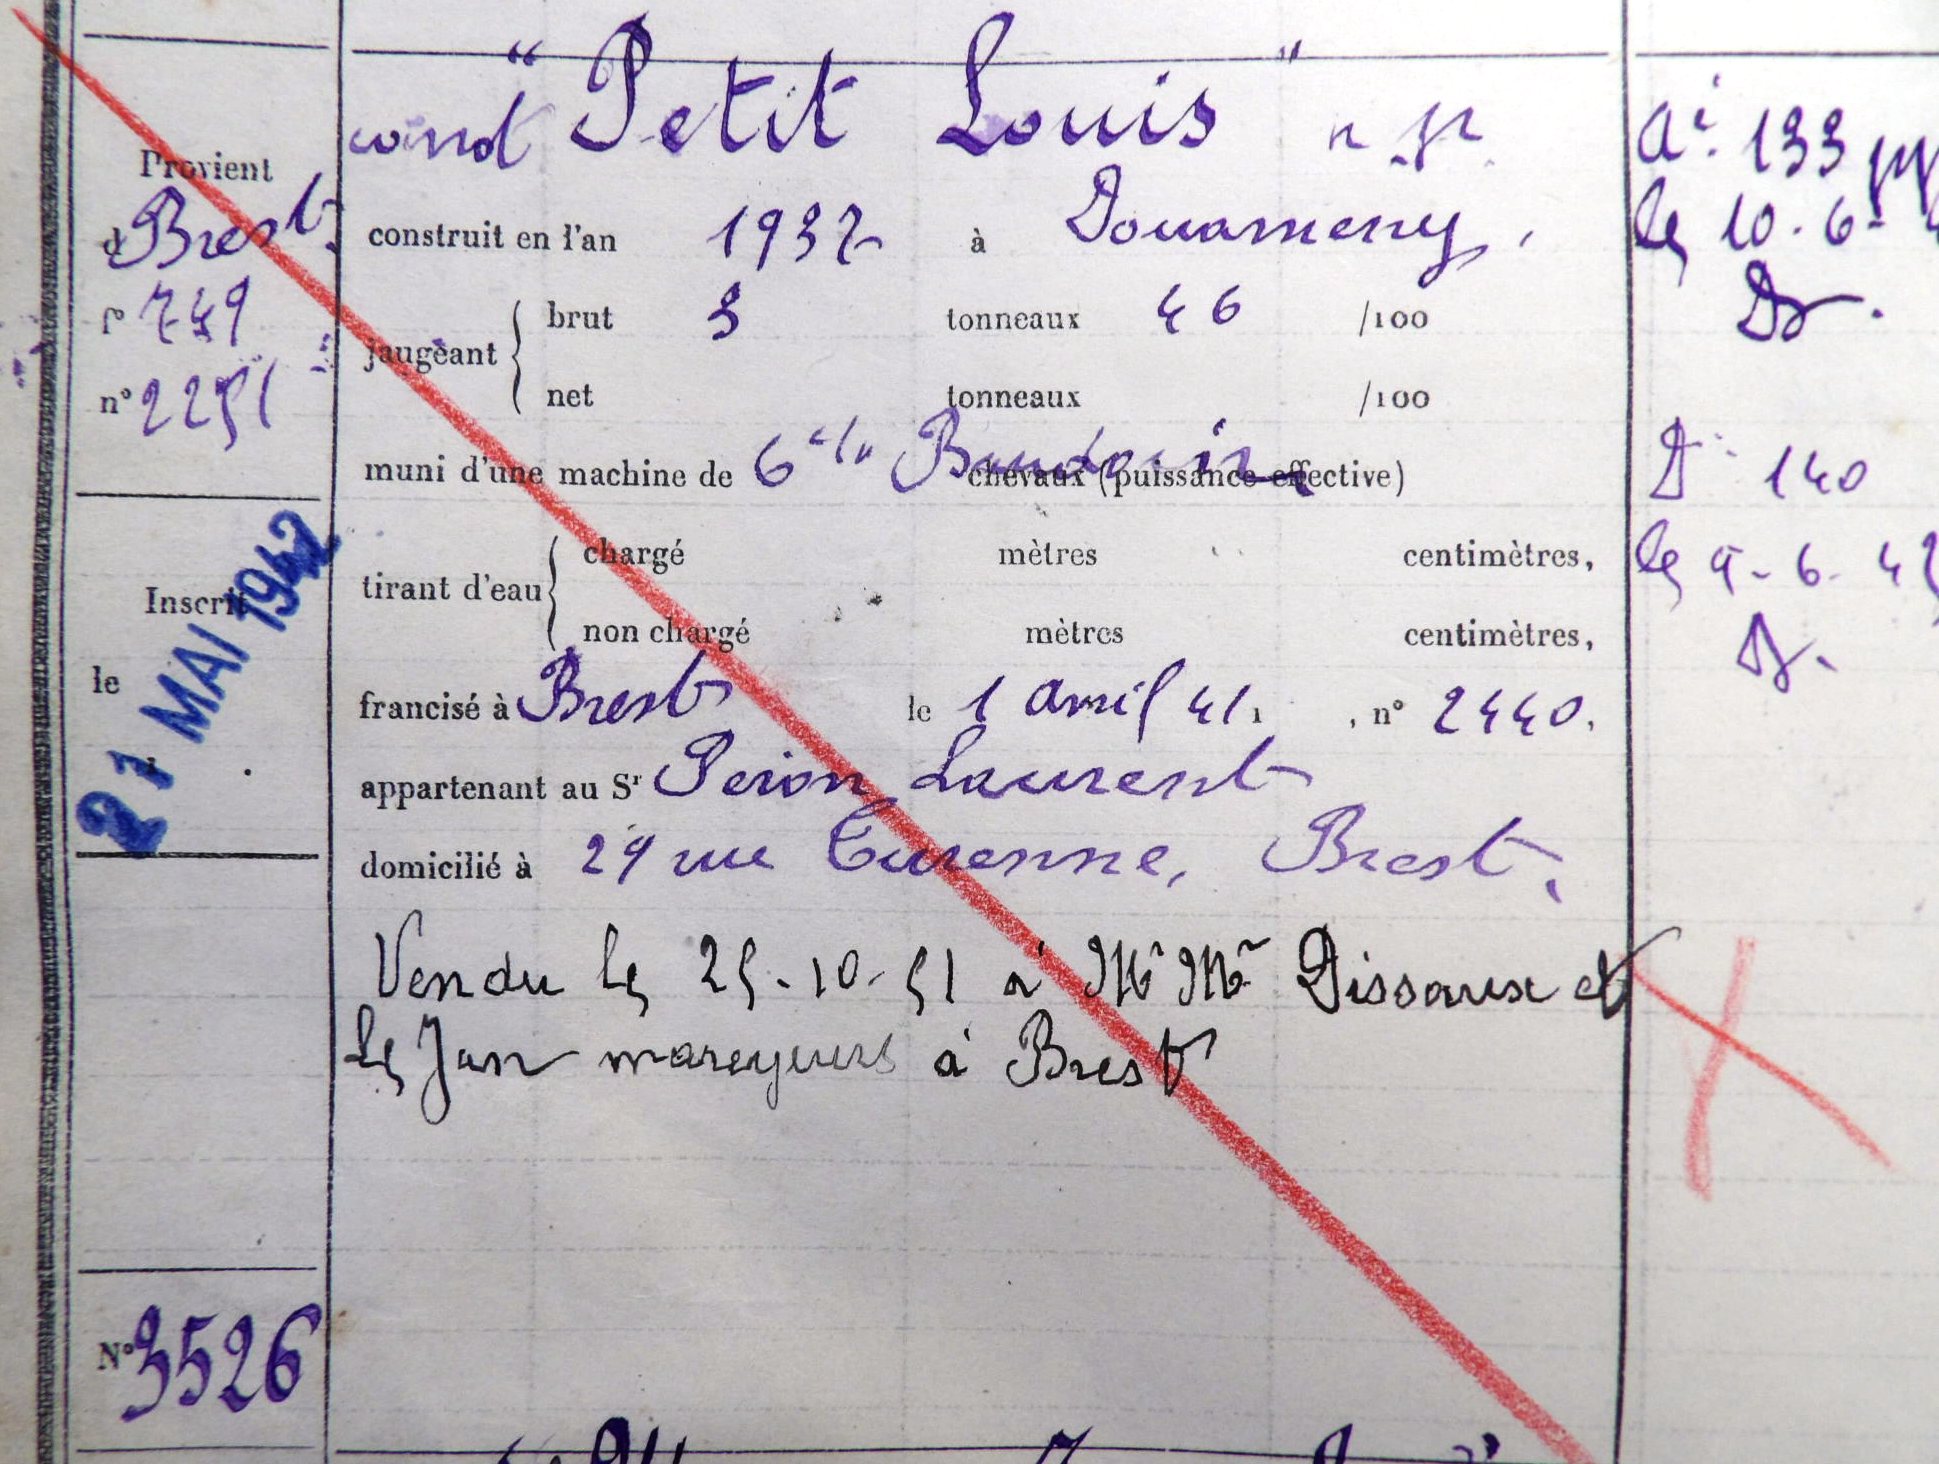 Provient
d Brest
f° 749
n° 2251
Inscrit
le
21 MAI 1942
N° 3526
"Petit Louis"
construit en l'an 1937 à Douarneney,
jaugeant { brut 3 tonneaux 46 /100
net tonneaux /100
muni d'une machine de 6 Baudouin chevaux (puissance effective)
tirant d'eau { chargé mètres centimètres,
non chargé mètres centimètres,
francisé à Brest le 1 avril 41, n° 2440.
appartenant au Sr Peron Laurent
domicilié à 29 rue Turenne, Brest.
Vendu le 25-10-51 à Mr Mr Dissaux et
Le Jan mareyeurs à Brest
Ai. 133
le 10.6-
Dr.
D. 140
le 9-6-42